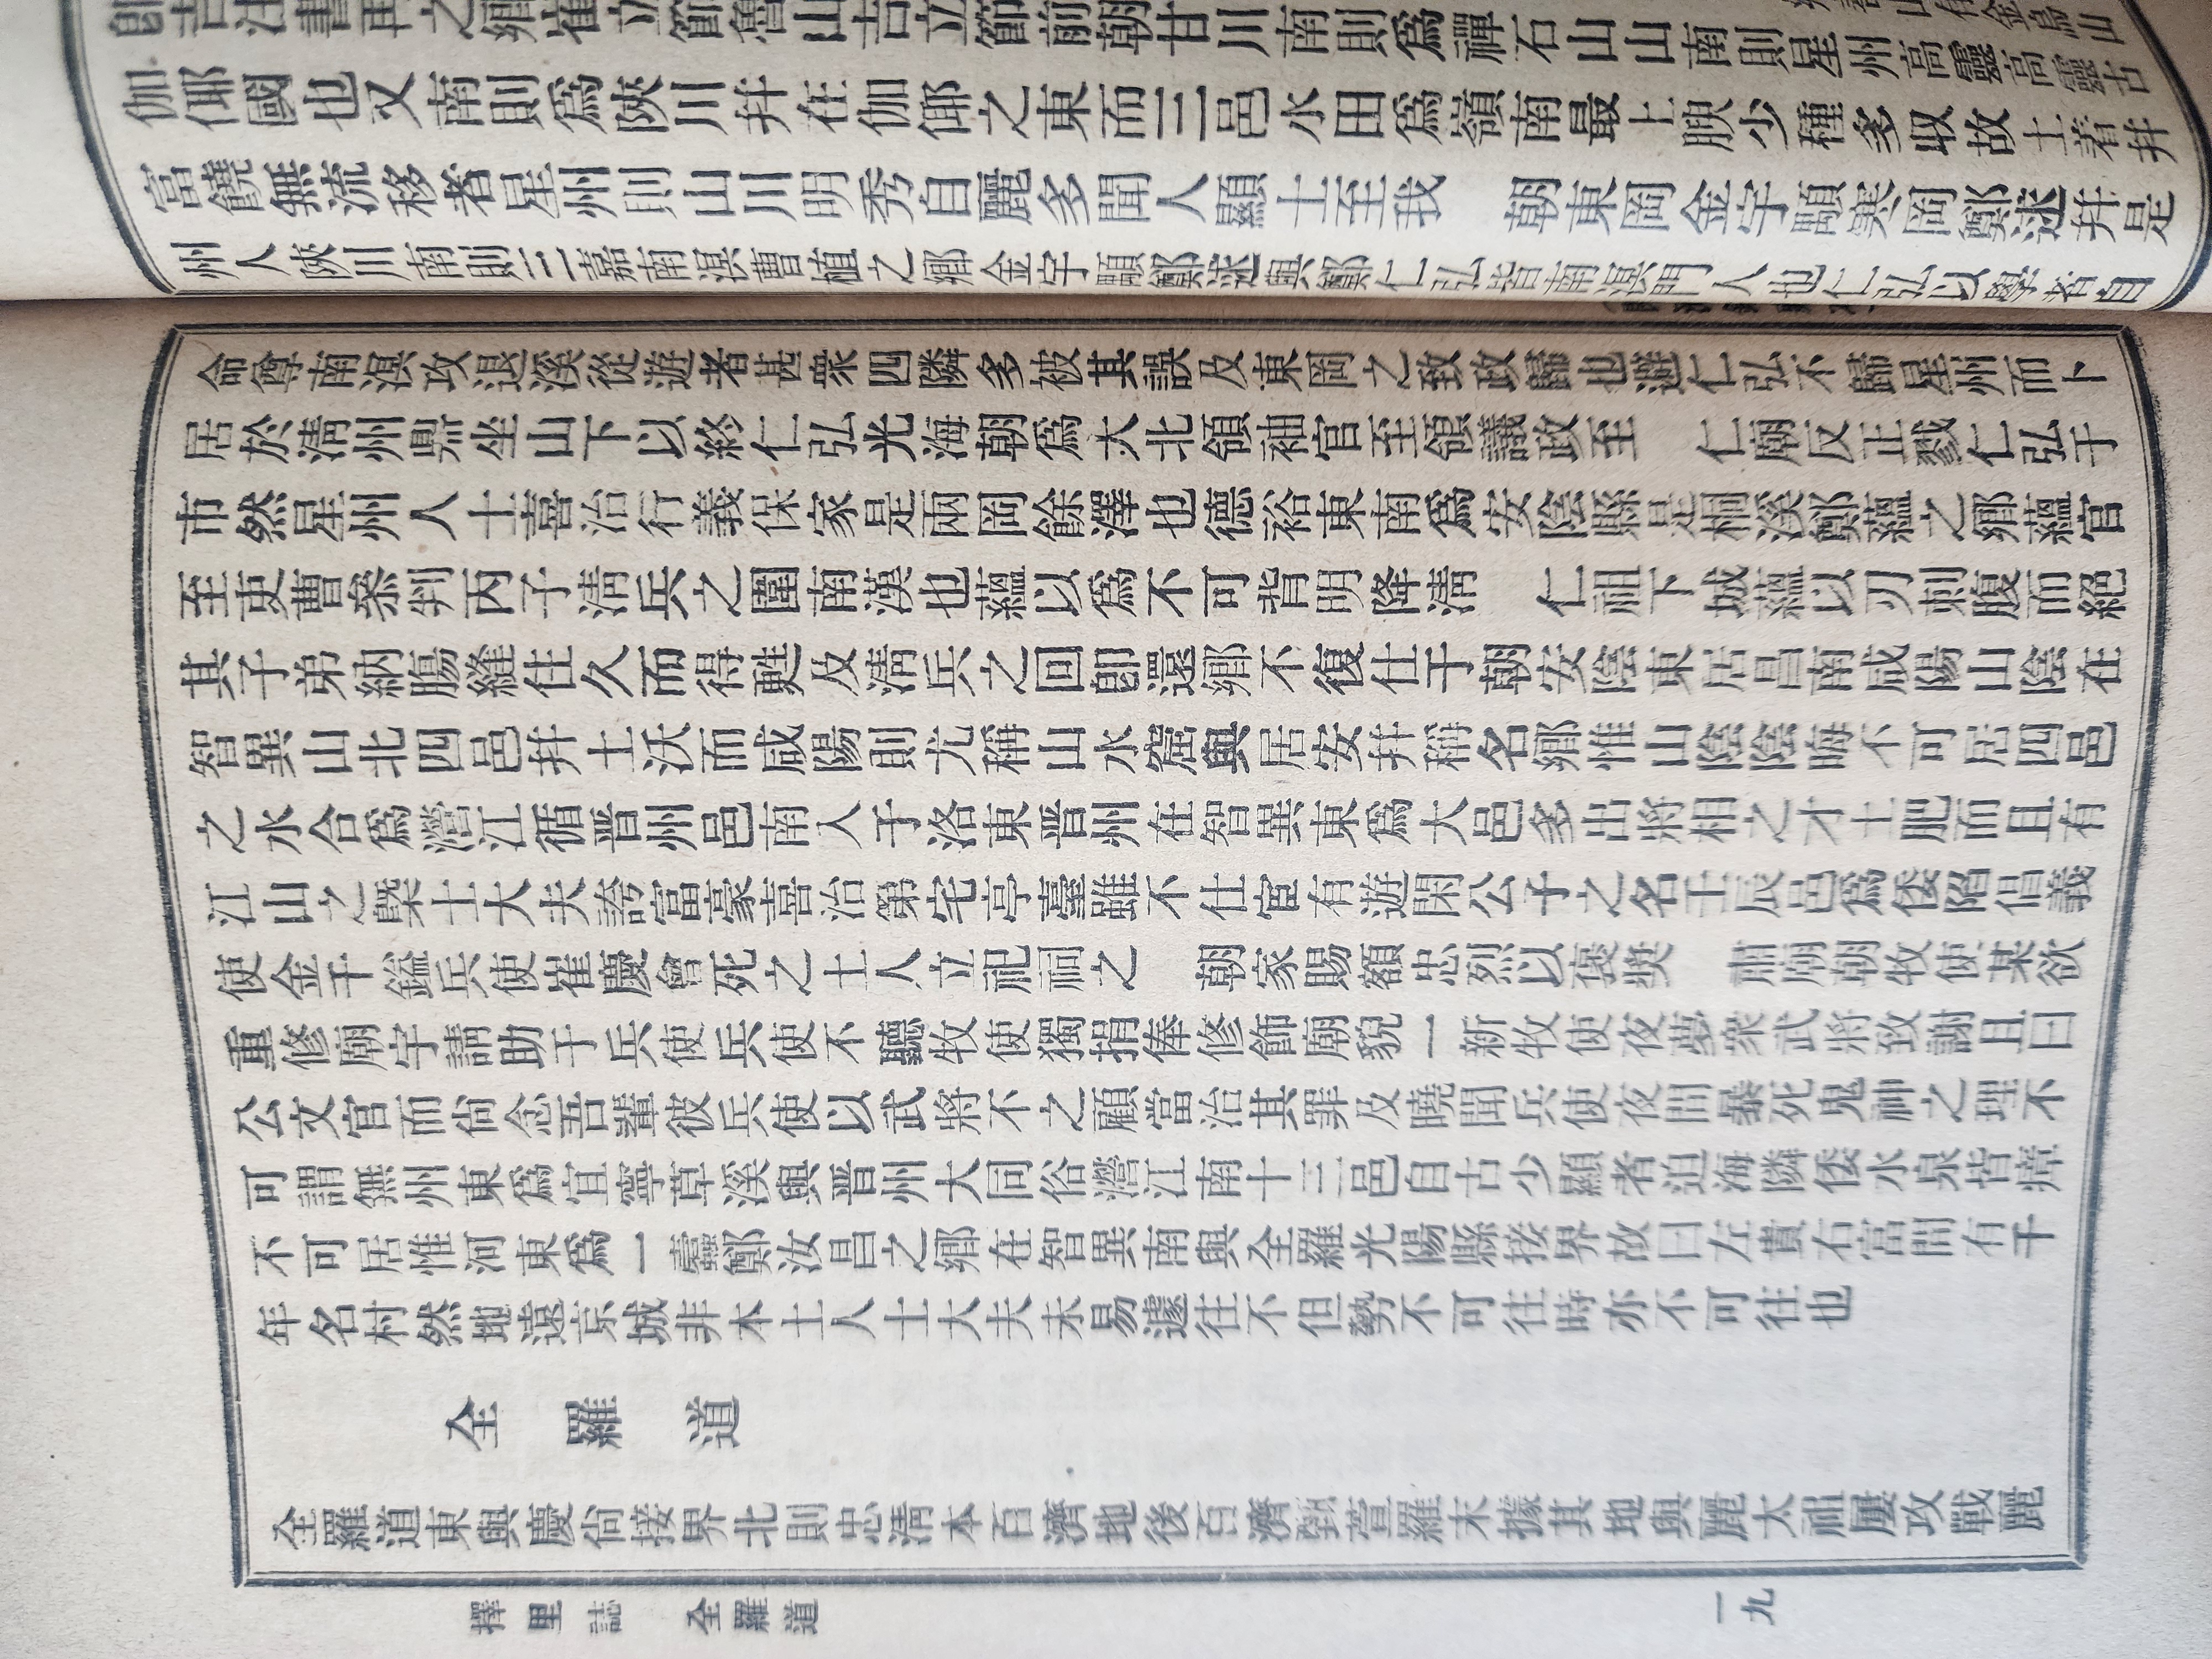 山有金烏山
卽吉注書再之鄕崔立節魯山吉立節前朝甘川南則爲禪石山山南則星州高靈高靈古
伽倻國也又南則爲陜川幷在伽倻之東而三邑水田爲嶺南最上腴少種多收故土着幷
富饒無流移者星州則山川明秀自麗多聞人顯士至我 朝東岡金宇顒寒岡鄭逑幷是
州人陜川南則三嘉南溟曹植之鄕金宇顒鄭逑與鄭仁弘皆南溟門人也仁弘以學者自
命尊南溟攻退溪從遊者甚衆四隣多被其誤及東岡之致政歸也避仁弘不歸星州而卜
居於淸州鼎坐山下以終仁弘光海朝爲大北領袖官至領議政至 仁廟反正戮仁弘于
市然星州人士喜治行義保家是兩岡餘澤也德裕東南爲安陰縣是桐溪鄭蘊之鄕蘊官
至吏曹叅判丙子淸兵之圍南漢也蘊以爲不可背明降淸 仁祖下城蘊以刃刺腹而絕
其子弟納腸縫住久而得甦及淸兵之回卽還鄕不復仕于朝安陰東居昌南咸陽山陰在
智異山北四邑幷土沃而咸陽則尤稱山水窟與居安幷稱名鄕惟山陰陰晦不可居四邑
之水合爲瀯江循晋州邑南入于洛東晋州在智異東爲大邑多出將相之才土肥而且有
江山之槩士大夫誇富豪喜治第宅亭臺雖不仕宦有遊閑公子之名壬辰邑爲倭陷倡義
使金千鎰兵使崔慶會死之士人立祀祠之 朝家賜額忠烈以褒奬 肅廟朝牧使某欲
重修廟宇請助于兵使兵使不聽牧使獨捐俸修飾廟貌一新牧使夜夢衆武將致謝且曰
公文官而尙念吾輩彼兵使以武將不之顧當治其罪及曉聞兵使夜間暴死鬼神之理不
可謂無州東爲宜寧草溪與晋州大同俗瀯江南十三邑自古少顯者迫海隣倭水泉皆瘴
不可居惟河東爲一蠹鄭汝昌之鄕在智異南與全羅光陽縣接界故曰左貴右富間有千
年名村然地遠京城非本土人士大夫未易遽往不但勢不可往時亦不可往也
全羅道
全羅道東與慶尙接界北則忠淸本百濟地後百濟甄萱羅末據其地與麗太祖屢攻戰麗
擇里誌 全羅道
一九